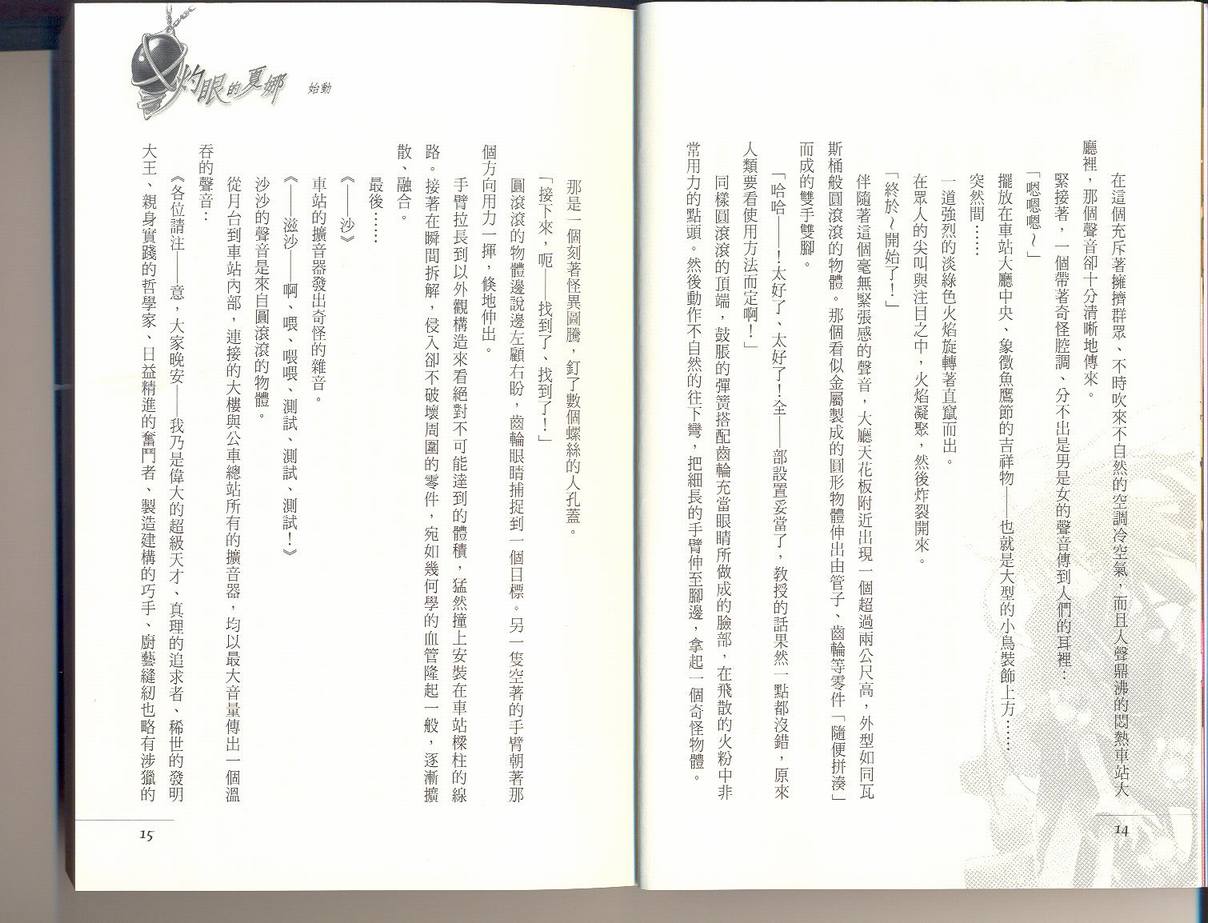 在這個充斥著擁擠群眾、不時吹來不自然的空調冷空氣，而且人聲鼎沸的悶熱車站大
廳裡，那個聲音卻十分清晰地傳來。
緊接著，一個帶著奇怪腔調、分不出是男是女的聲音傳到人們的耳裡：
「嗯嗯嗯～」
擺放在車站大廳中央、象徵魚鷹節的吉祥物——也就是大型的小鳥裝飾上方……
突然間……
一道強烈的淡綠色火焰旋轉著直竄而出。
在眾人的尖叫與注目之中，火焰凝聚，然後炸裂開來。
「終於～開始了！」
伴隨著這個毫無緊張感的聲音，大廳天花板附近出現一個超過兩公尺高，外型如同瓦
斯桶般圓滾滾的物體。那個看似金屬製成的圓形物體伸出由管子、齒輪等零件「隨便拼湊」
而成的雙手雙腳。
「哈哈——！太好了、太好了！全——部設置妥當了，教授的話果然一點都沒錯，原來
人類要看使用方法而定啊！」
同樣圓滾滾的頂端，鼓脹的彈簧搭配齒輪充當眼睛所做成的臉部，在飛散的火粉中非
常用力的點頭。然後動作不自然的往下彎，把細長的手臂伸至腳邊，拿起一個奇怪物體。
14
灼眼的夏娜 始動
那是一個刻著怪異圖騰，釘了數個螺絲的人孔蓋。
「接下來，呃——找到了、找到了！」
圓滾滾的物體邊說邊左顧右盼，齒輪眼睛捕捉到一個目標。另一隻空著的手臂朝著那
個方向用力一揮，倏地伸出。
手臂拉長到以外觀構造來看絕對不可能達到的體積，猛然撞上安裝在車站樑柱的線
路。接著在瞬間拆解，侵入卻不破壞周圍的零件，宛如幾何學的血管隆起一般，逐漸擴
散、融合。
最後……
《——沙》
車站的擴音器發出奇怪的雜音。
《——滋沙——啊、喂、喂喂、測試、測試、測試！》
沙沙的聲音是來自圓滾滾的物體。
從月台到車站內部，連接的大樓與公車總站所有的擴音器，均以最大音量傳出一個溫
吞的聲音：
《各位請注——意，大家晚安——我乃是偉大的超級天才、真理的追求者、稀世的發明
大王、親身實踐的哲學家、日益精進的奮鬥者、製造建構的巧手、廚藝縫紉也略有涉獵的
15